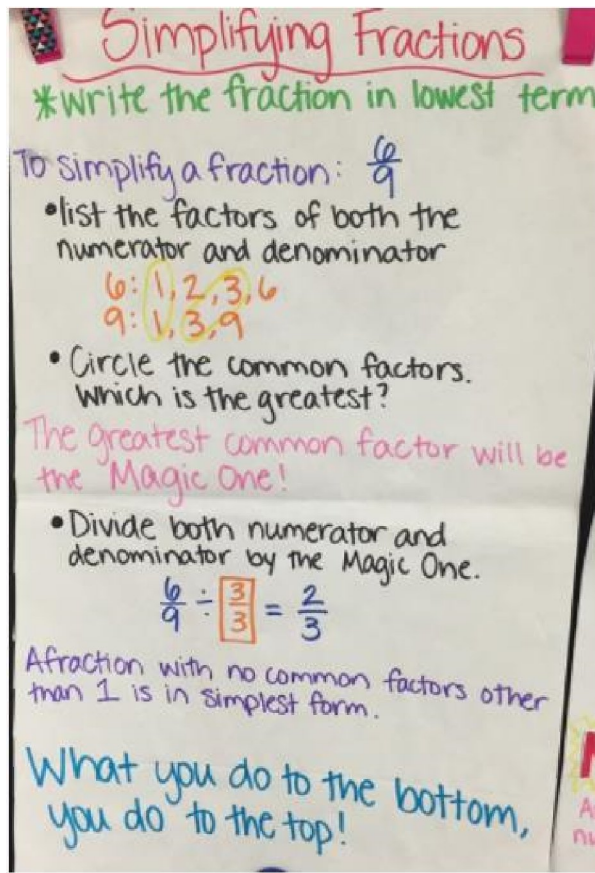 Simplifying Fractions
*write the fraction in lowest term
To simplify a fraction: 6/9
•list the factors of both the
numerator and denominator
6: 1, 2, 3, 6
9: 1, 3, 9
• Circle the common factors.
Which is the greatest?
The greatest common factor will be
the Magic One!
• Divide both numerator and
denominator by the Magic One.
6/9 ÷ 3/3 = 2/3
A fraction with no common factors other
than 1 is in simplest form.
What you do to the bottom,
you do to the top!